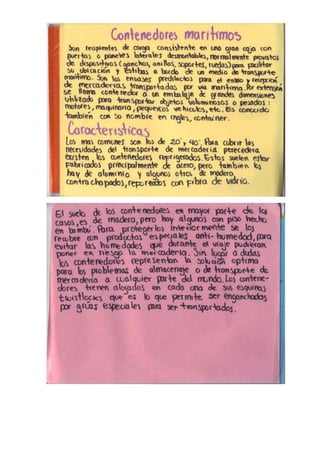 Contenedores maritimos
Son recipientes de carga consistente en una gran caja con
puertas o paneles laterales desmontables, normalmente provistos
de dispositivos (ganchos, anillos, soportes, ruedas) para facilitar
su ubicación y estibas a bordo de un medio de transporte
marítimo. Son los envases predilectos para el envio y recepción
de mercaderias transportadas por via maritima. Por extensión
se llama contenedor a un embalaje de grandes dimensiones
utilizado para transportar objetos voluminosos o pesados:
motores, maquinaria, pequeños vehiculos, etc. Es conocido
también con su nombre en ingles, container.
Caracteristicas
Los mas comunes son los de 20' y 40'. Para cubrir las
necesidades del transporte de mercaderia perecedera
existen los contenedores refrigerados. Estos suelen estar
Fabricados principalmente de acero, pero tambien los
hay de aluminio y algunos otros de madera,
contrachapados, reforzados con fibra de vidrio.
El suelo de los contenedores en mayor parte de los
casos, es de madera, pero hay algunos con piso hecho
en bambú. Para protegerlos interiormente se los
recubre con productos especiales anti-humedad, para
evitar las humedades que durante el viaje pudieran
poner en riesgo la mercaderia. Sin lugar a dudas
los contenedores representan la solución optima
para los problemas de almacenaje o de transporte de
mercaderia a cualquier parte del mundo. Los contene-
dores tienen alojados en cada una de sus esquinas
twistlocks que es lo que permite ser enganchados
por grúas especiales para ser transportados.